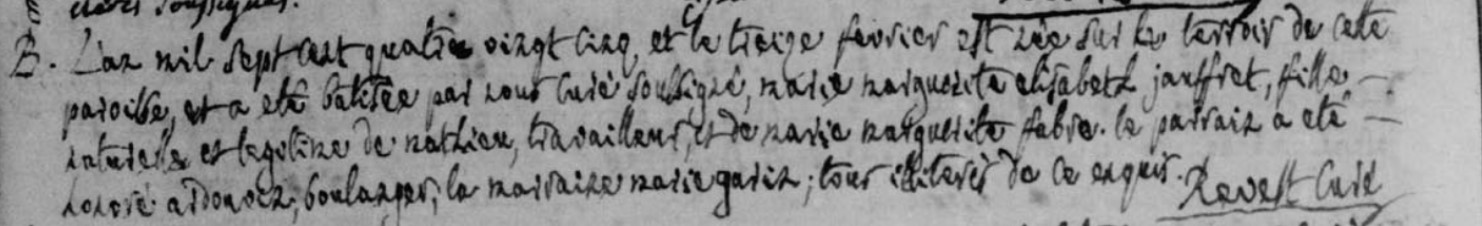 cleres soussignés.
B. L'an mil sept cent quatre vingt cinq, et le treize fevrier est née sur le terroir de cette
paroisse, et a eté batisée par nous curé soussigné, marie marguerite elisabeth jauffret, fille
naturelle et legitime de mathieu, travailleur, et de marie marguerite fabre. le parrain a eté
honoré ardouvin, boulanger, la marraine marie garin; tous illiterés de ce enquis. Revest Curé